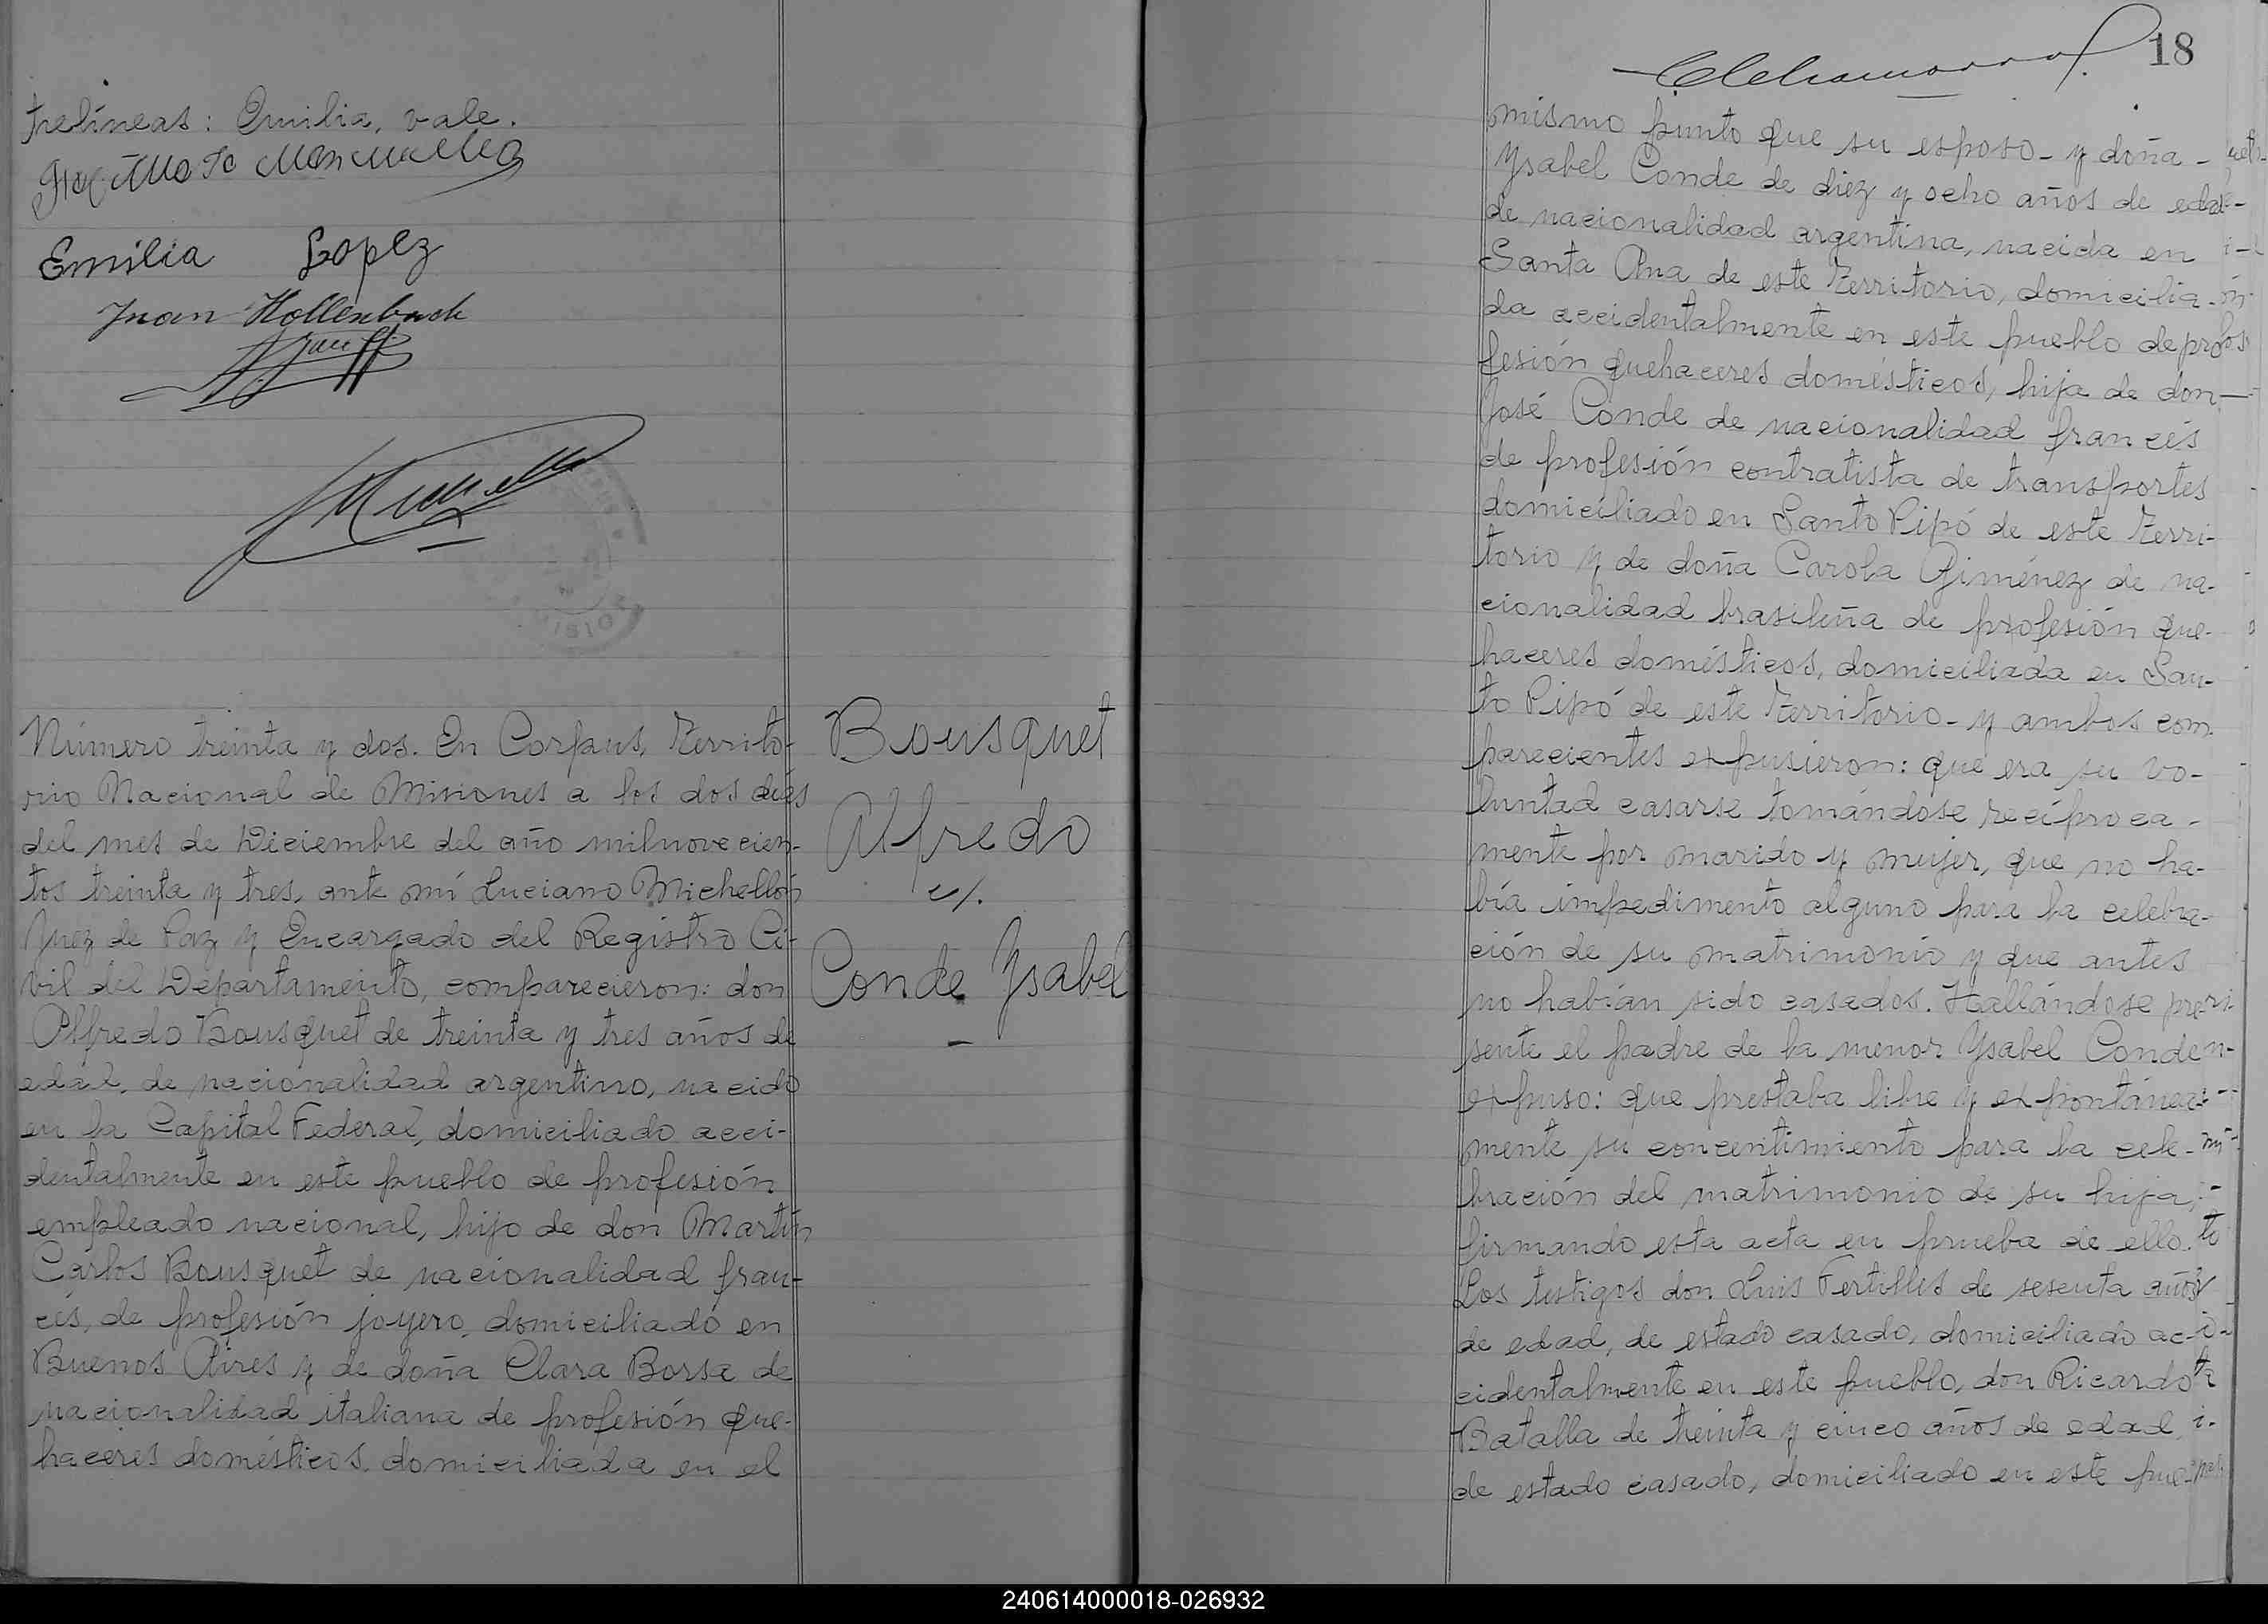 trelíneas: Emilia, vale.
Emilia Lopez
Juan Hollenbach
Número treinta y dos. En Corpus, Territo-
rio Nacional de Misiones a los dos días
del mes de Diciembre del año milnovecien-
tos treinta y tres, ante mí Luciano Michellón
Juez de Paz y Encargado del Registro Ci-
vil del Departamento, comparecieron: don
Alfredo Bousquet de treinta y tres años de
edad, de nacionalidad argentino, nacido
en la Capital Federal, domiciliado acci-
dentalmente en este pueblo de profesión
empleado nacional, hijo de don Martín
Carlos Bousquet de nacionalidad fran-
cés, de profesión joyero, domiciliado en
Buenos Aires y de doña Clara Borsa de
nacionalidad italiana de profesión que-
haceres domésticos, domiciliada en el
Bousquet
Alfredo
c/.
Conde Ysabel
18
mismo punto que su esposo- y doña-
Ysabel Conde de diez y ocho años de edad-
de nacionalidad argentina, nacida en
Santa Ana de este Territorio, domicilia-
da accidentalmente en este pueblo de pro-
fesión quehaceres domésticos, hija de don-
José Conde de nacionalidad francés
de profesión contratista de transportes
domiciliado en Santo Pipó de este Terri-
torio y de doña Carola Giménez de na-
cionalidad brasileña de profesión que-
haceres domésticos, domiciliada en San-
to Pipó de este Territorio- y ambos com-
parecientes expusieron: que era su vo-
luntad casarse tomándose recíproca-
mente por marido y mujer, que no ha-
bía impedimento alguno para la celebra-
ción de su matrimonio y que antes
no habían sido casados. Hallándose pre-
sente el padre de la menor Ysabel Conde
expuso: que prestaba libre y expontánea-
mente su concentimiento para la cele-
bración del matrimonio de su hija,
firmando esta acta en prueba de ello.
Los testigos don Luis Fertilles de sesenta años
de edad, de estado casado, domiciliado ac-
cidentalmente en este pueblo, don Ricardo
Batalla de treinta y cinco años de edad
de estado casado, domiciliado en este pue-
240614000018-026932